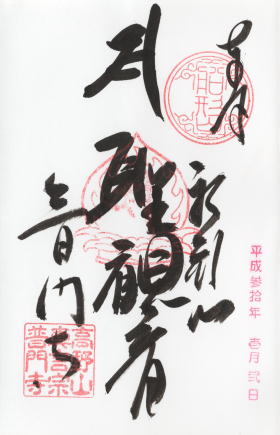 奉拝
船形山
平成参拾年 壱月 弐日
聖観音
普門寺
高野山
真言宗
普門寺